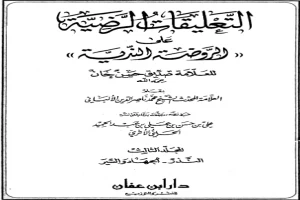 التعليقات الرضية
على
«الروضة الندية»
للعلامة صديق حسن خان
رحمه الله
بقلم
العلامة المحدث الشيخ محمد ناصر الدين الألباني
علي بن حسن بن علي بن عبد الحميد
الحلبي الأثري
المجلد الثالث
النذر - الجهاد والسير
دار ابن عفان